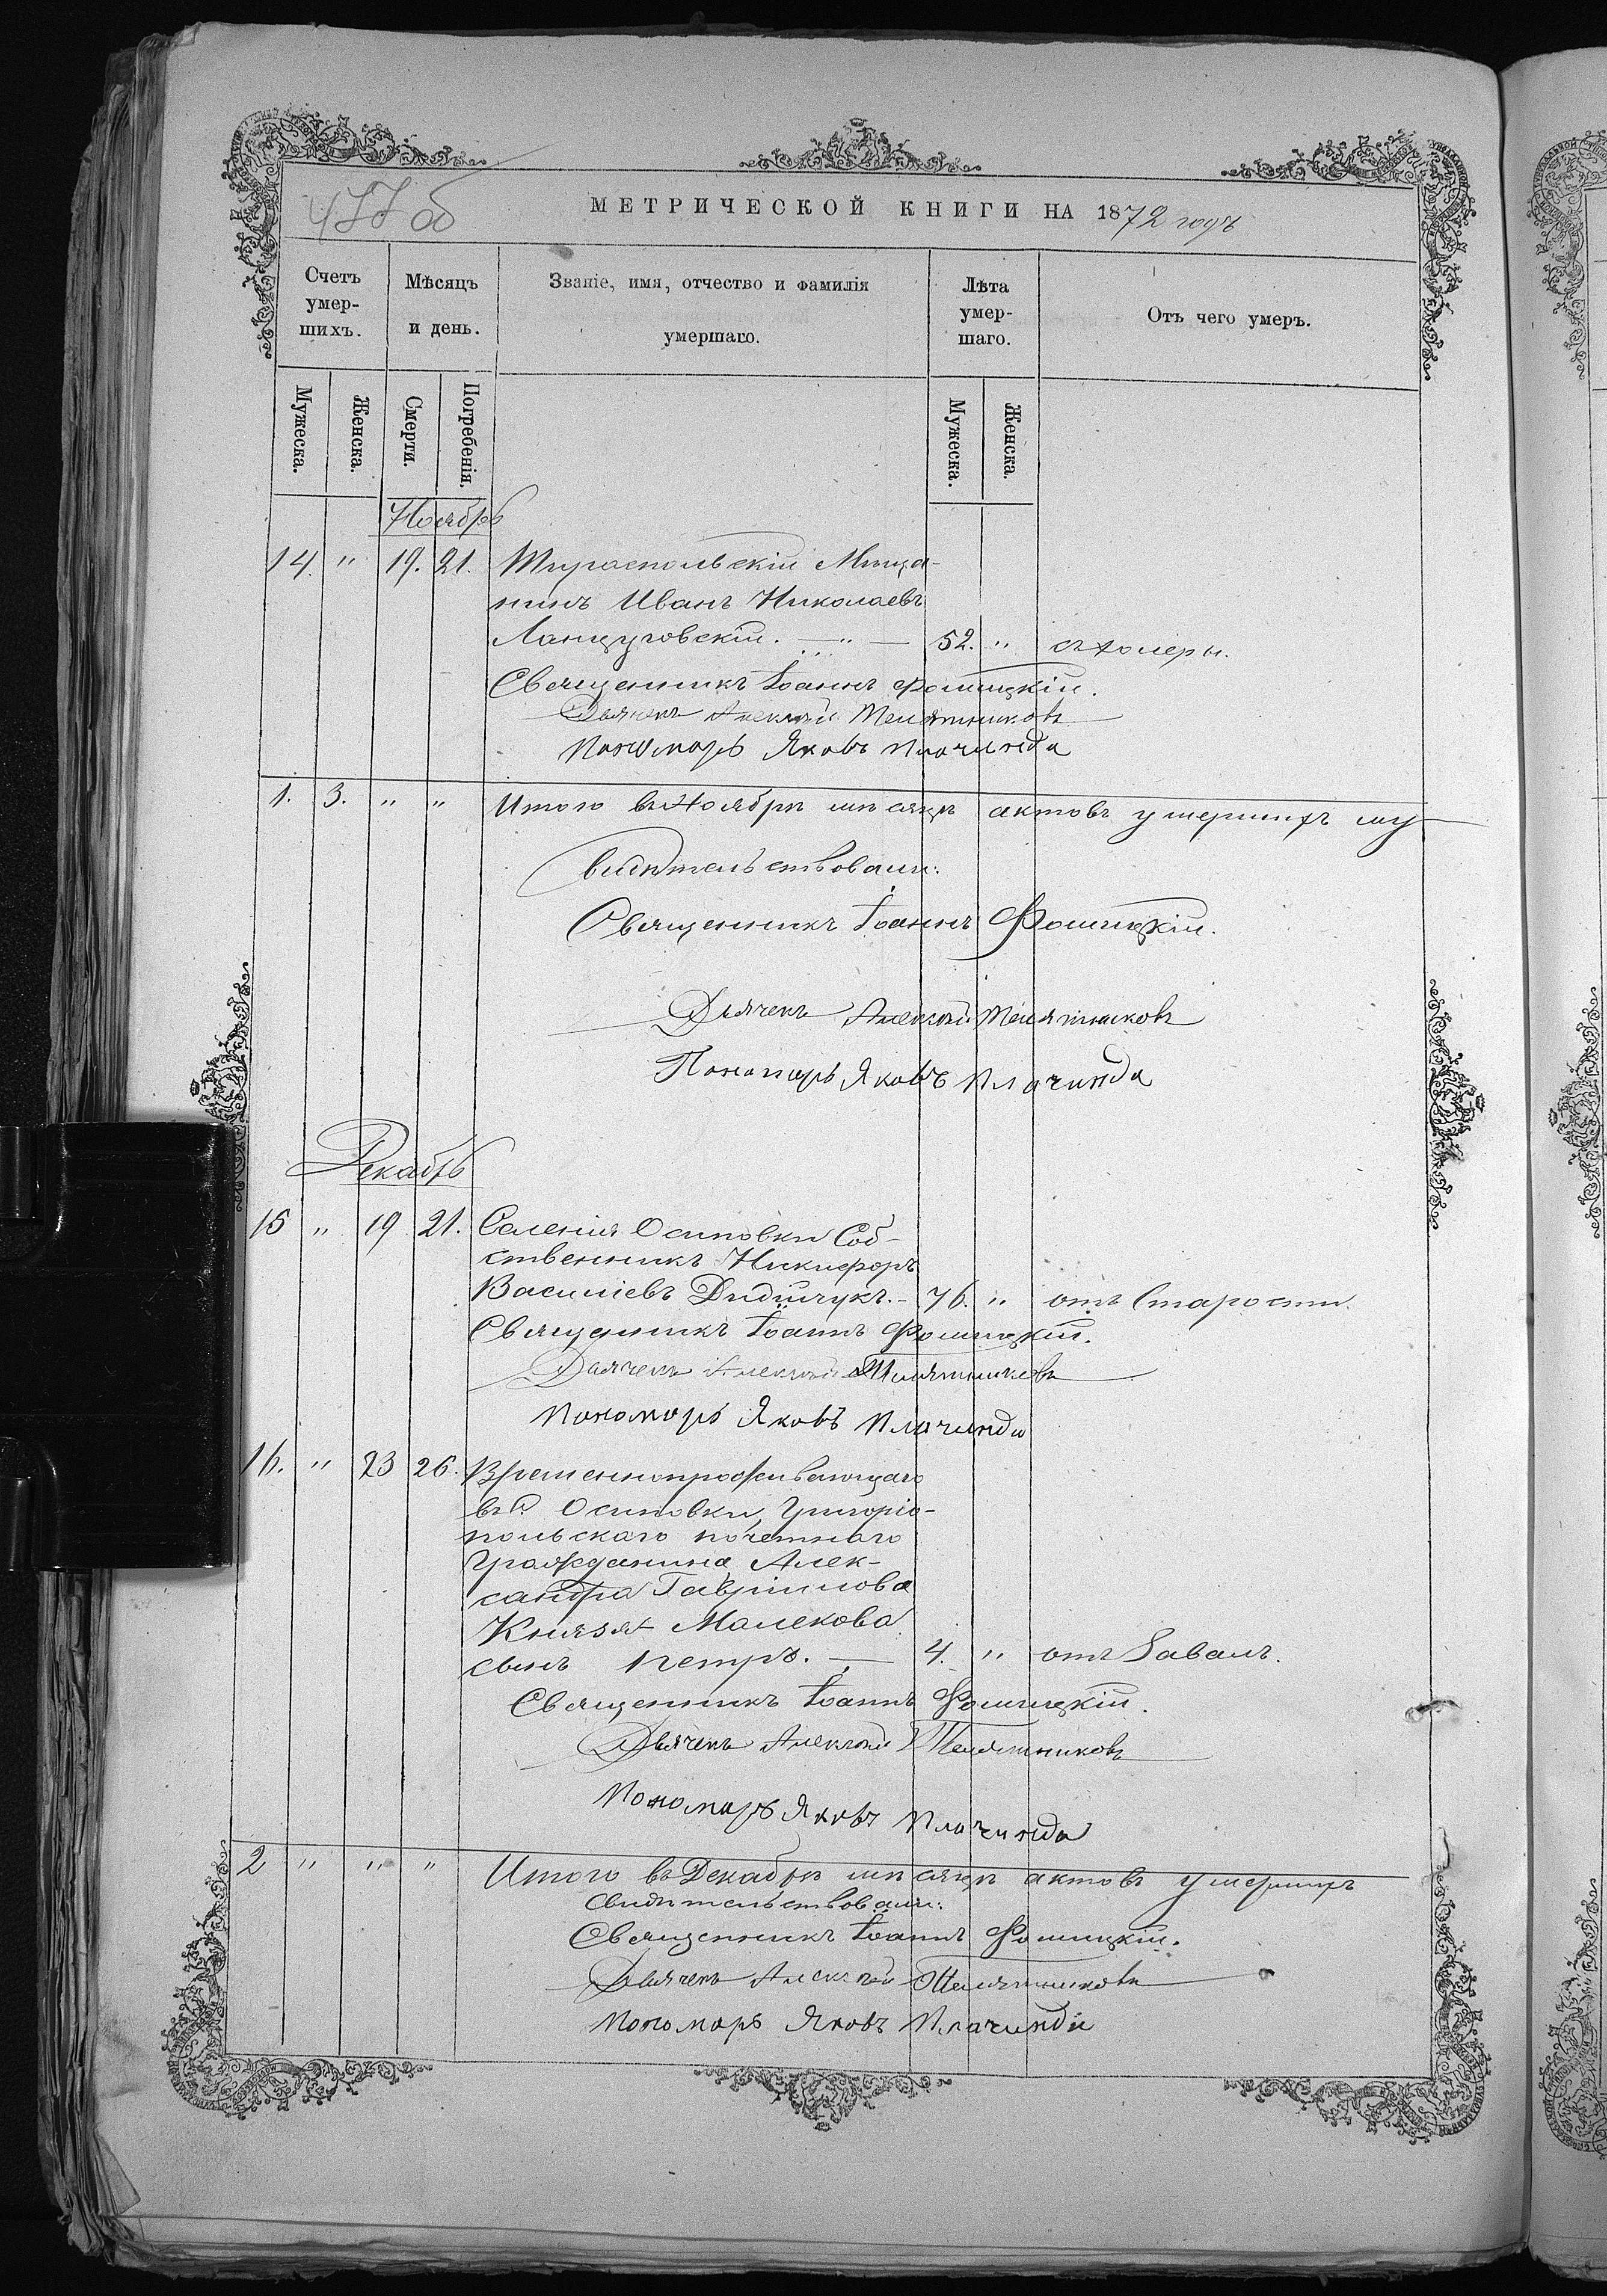 477 об
МЕТРИЧЕСКОЙ КНИГИ НА 1872 годъ
Счетъ умер-шихъ.
Мѣсяцъ и день.
Званіе, имя, отчество и фамилія умершаго.
Лѣта умер-шаго.
Отъ чего умеръ.
Мужеска. Женска. Смерти. Погребенія. Мужеска. Женска.
Ноябрь
14. " 19. 21. Тираспольскій Мѣща-
нинъ Иванъ Николаевъ
Ланцуговскій. — " — 52. " съ холеры.
Священникъ Іоаннъ Фомицкій.
Дьячекъ Алексѣй Телятниковъ
Пономарь Яковъ Плачинда
1. 3. " " Итого въ Ноябрѣ мѣсяцѣ актовъ умершихъ
свидѣтельствовали:
Священникъ Іоаннъ Фомицкій.
Дьячекъ Алексѣй Телятниковъ
Пономарь Яковъ Плачинда
Декабрь
15 " 19 21. Селенія Осиповки Соб-
ственникъ Никифоръ
Василіевъ Дидичукъ. - 76. " отъ Старости.
Священникъ Іоаннъ Фомицкій.
Дьячекъ Алексѣй Телятниковъ
Пономарь Яковъ Плачинда
16. " 23 26. Временнопроживающаго
въ д. Осиповки, Григоріо-
польскаго почетнаго
Гражданина Алек-
сандра Гавріилова
Князя Малекова
сынъ Петръ. — 4. " отъ Завалъ.
Священникъ Іоаннъ Фомицкій.
Дьячекъ Алексѣй Телятниковъ
Пономарь Яковъ Плачинда
2 " " " Итого въ Декабрѣ мѣсяцѣ актовъ умершихъ
свидѣтельствовали:
Священникъ Іоаннъ Фомицкій.
Дьячекъ Алексѣй Телятниковъ
Пономарь Яковъ Плачинда